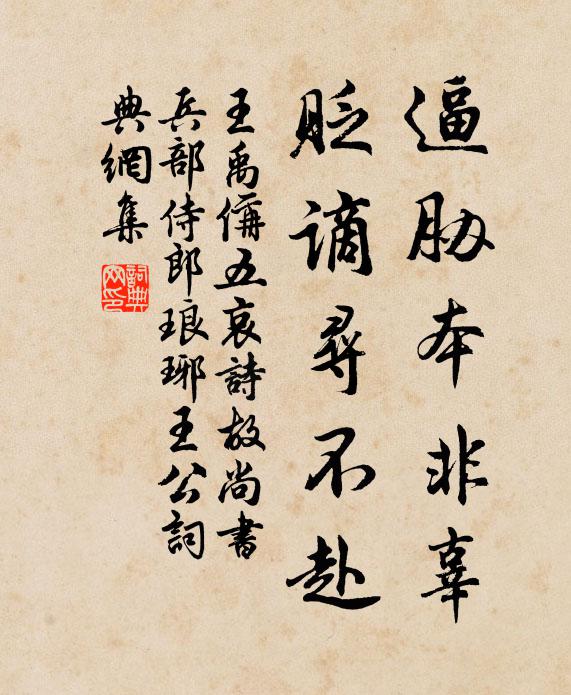 逼胁本非辜
貶謫尋不赴
王禹偁五哀詩故尚書
兵部侍郎琅琊王公詞
典網集
詞典網印